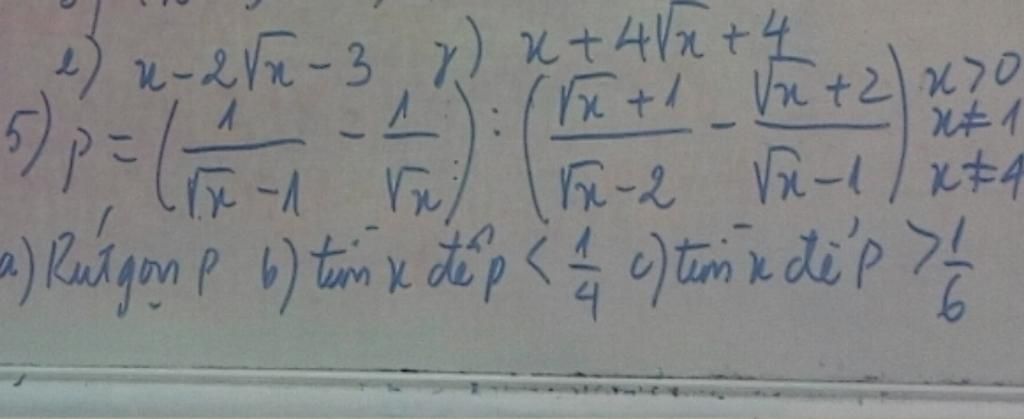 e) x - 2√x - 3 γ) x + 4√x + 4
5) P = (1/(√x - 1) - 1/√x) : ((√x + 1)/(√x - 2) - (√x + 2)/(√x - 1)) x > 0 x ≠ 1 x ≠ 4
a) Rút gọn P b) tìm x để P < 1/4 c) tìm x để P > 1/6